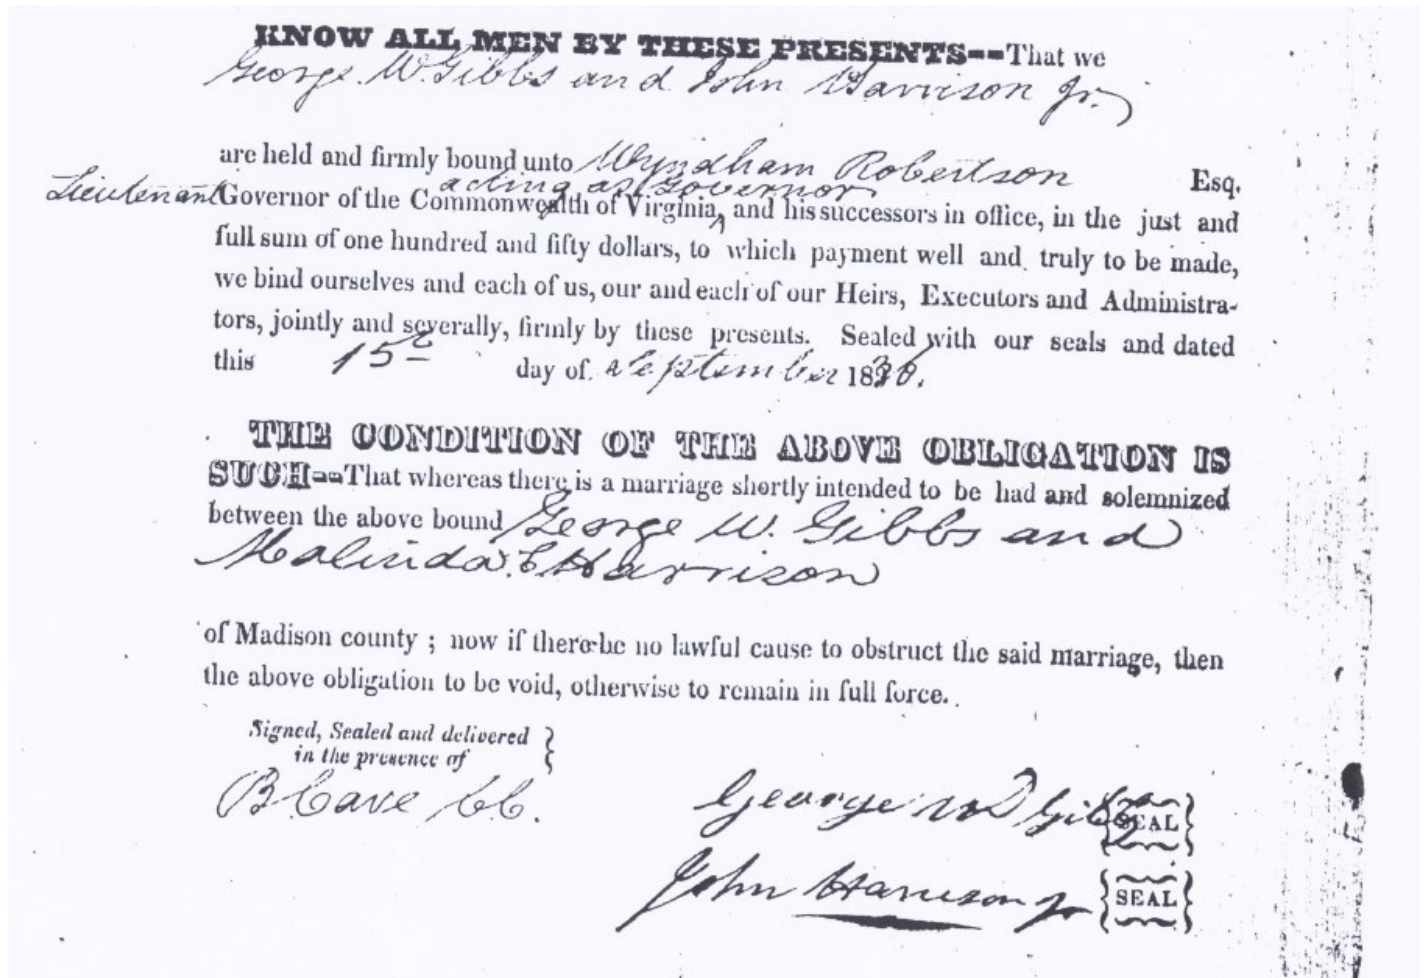 KNOW ALL MEN BY THESE PRESENTS--That we
George W. Gibbs and John Harrison Jr.
are held and firmly bound unto Wyndham Robertson Esq.
acting as Governor
Lieutenant Governor of the Commonwealth of Virginia, and his successors in office, in the just and
full sum of one hundred and fifty dollars, to which payment well and truly to be made,
we bind ourselves and each of us, our and each of our Heirs, Executors and Administra-
tors, jointly and severally, firmly by these presents. Sealed with our seals and dated
this 15th day of September 1836.
THE CONDITION OF THE ABOVE OBLIGATION IS
SUCH--That whereas there is a marriage shortly intended to be had and solemnized
between the above bound George W. Gibbs and
Malinda C Harrison
of Madison county ; now if there be no lawful cause to obstruct the said marriage, then
the above obligation to be void, otherwise to remain in full force.
Signed, Sealed and delivered
in the presence of
B Cave CC.
George W Gibbs SEAL
John Harrison Jr SEAL